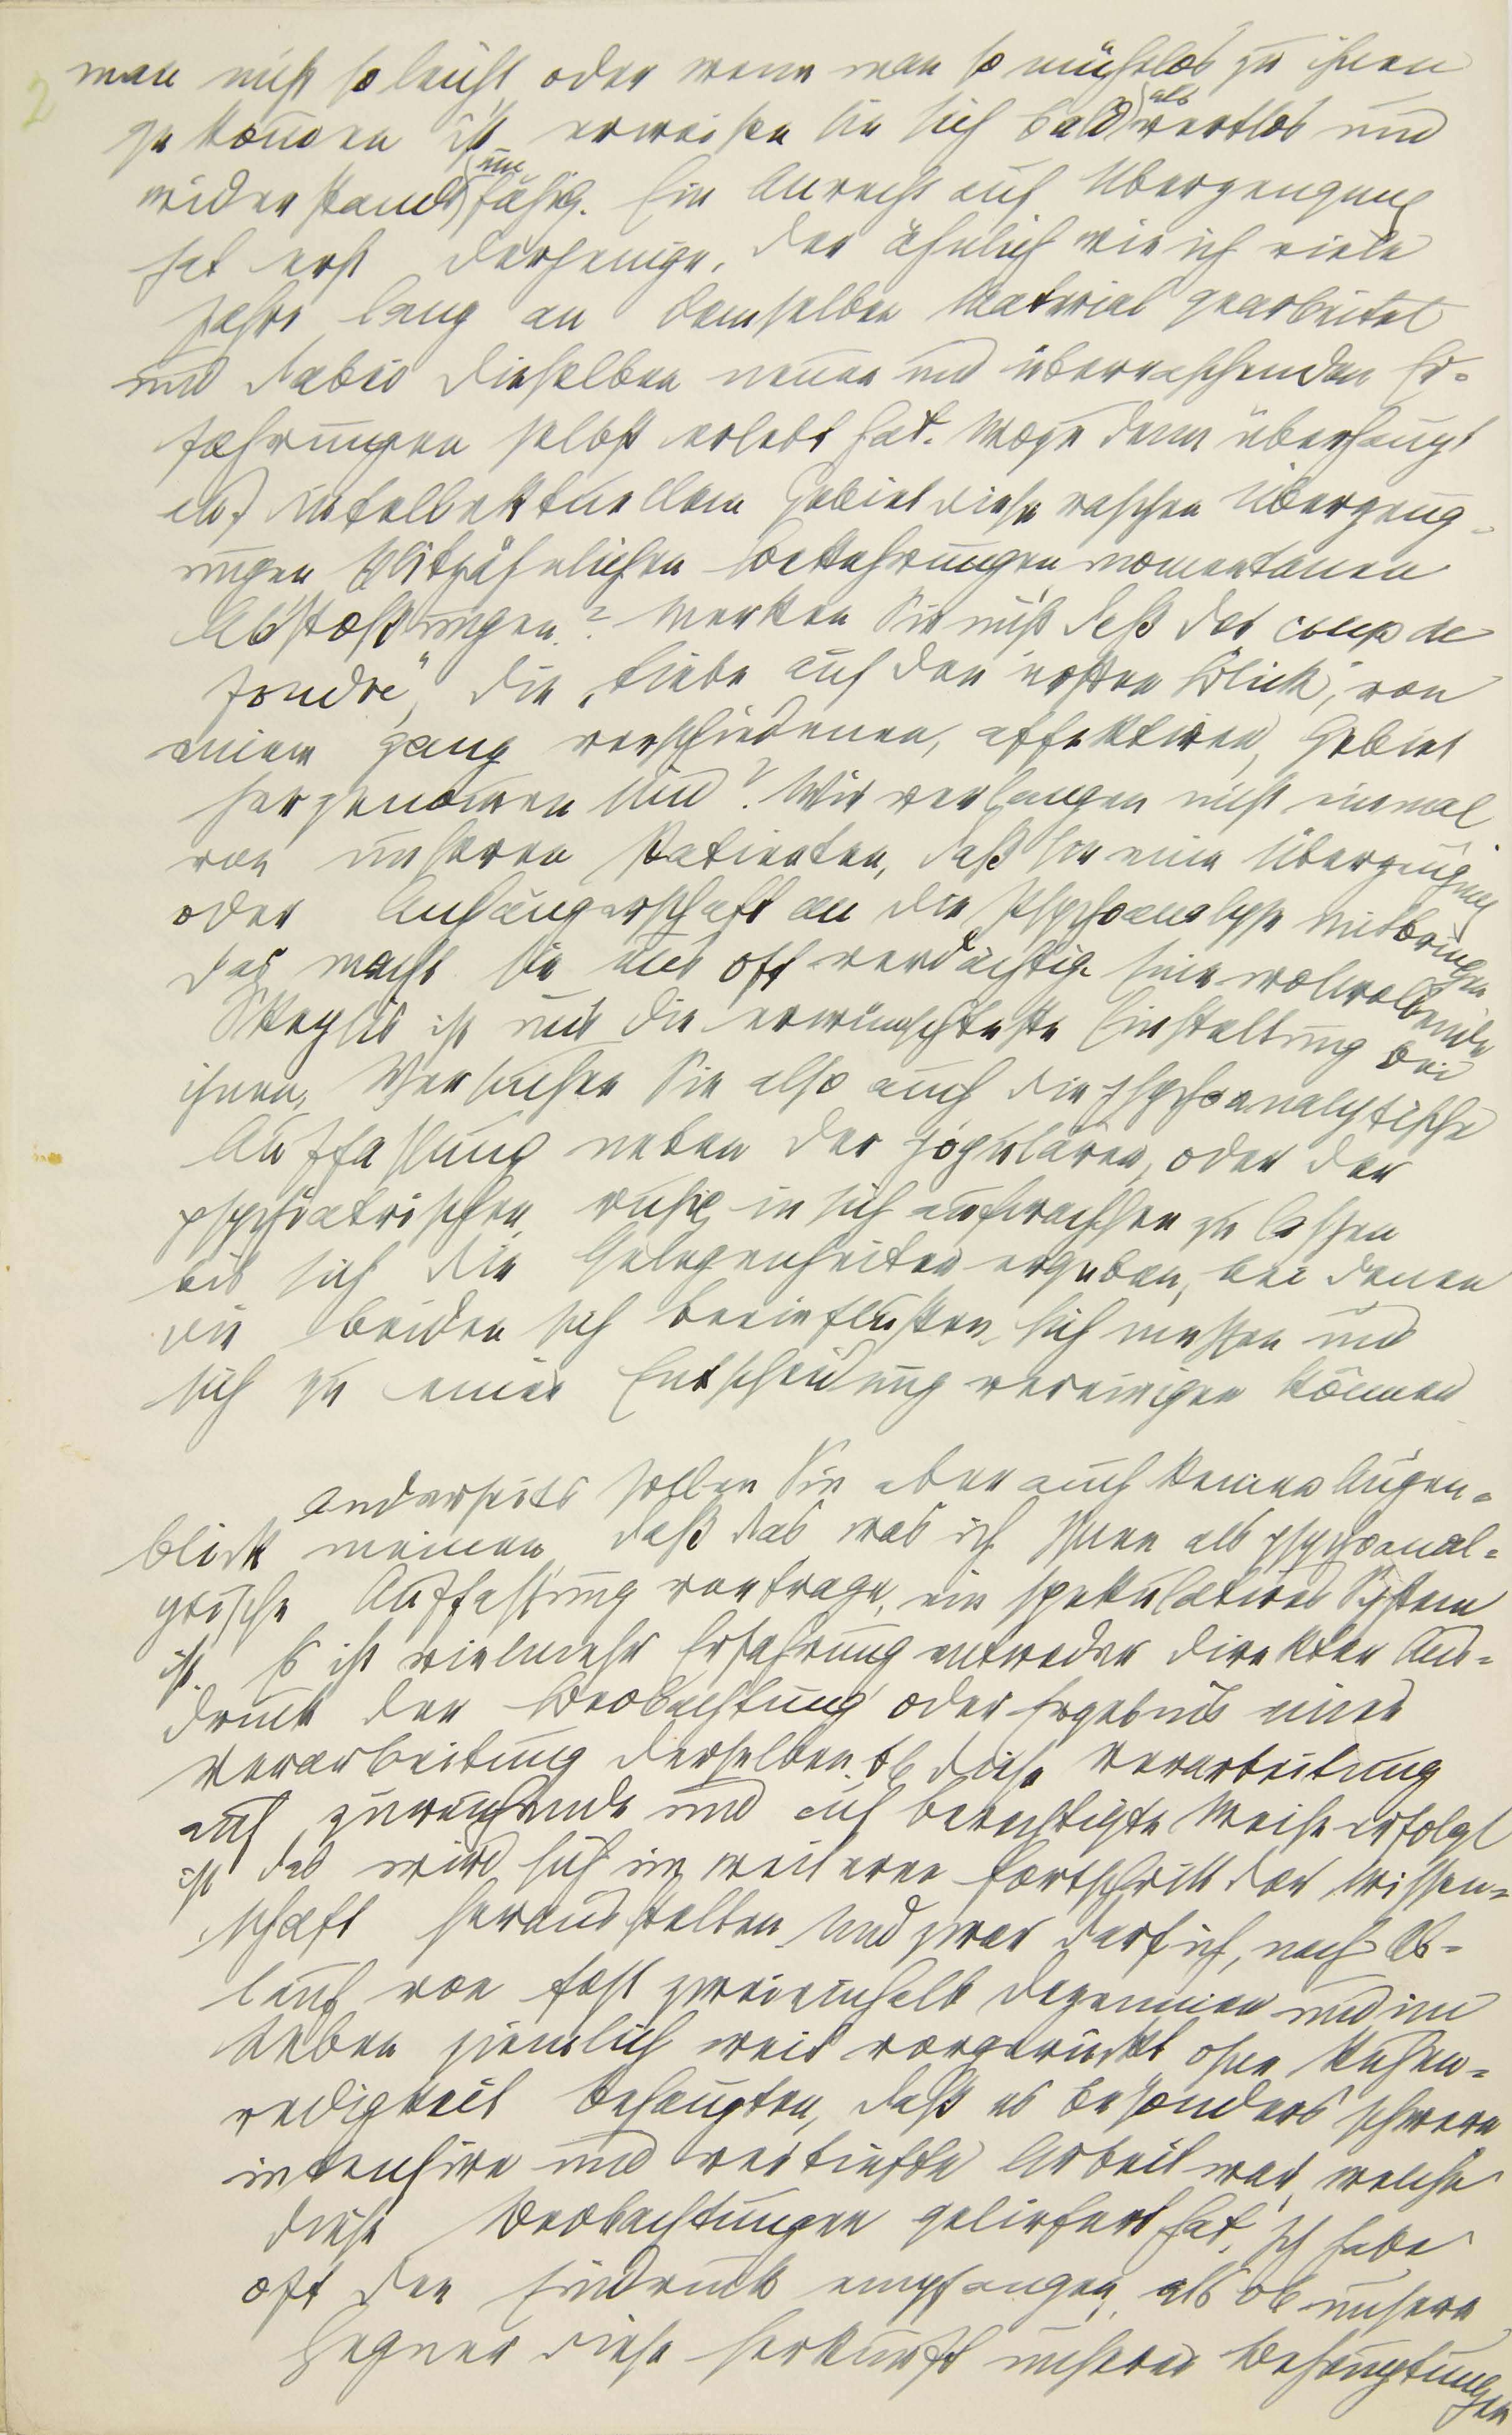 man nicht so leicht oder wenn man so mühelos zu ihnen
gekommen ist erweisen sie sich bald als wertlos und
widerstandsunfähig. Ein Anrecht auf Überzeugung
hat erst derjenige, der ähnlich wie ich viele
Jahre lang an demselben Material gearbeitet
und dabei dieselben neuen und überraschenden Er=
fahrungen selbst erlebt hat. Wozu denn überhaupt
auf intellektuellem Gebiet diese raschen Überzeug=
ungen blitzähnlichen Bekehrungen momentanen
Abstoßungen? Merken Sie nicht daß der coup de
foudre", die „Liebe auf den ersten Blick", von
einem ganz verschiedenen, affektiven, Gebiet
hergenommen sind? Wir verlangen nicht einmal
von unseren Patienten, daß sie eine Überzeugung
oder Anhängerschaft an die Psychoanalyse mitbringen
das macht sie uns oft verdächtig. Eine wolwollende
Skepsis ist uns die erwünschteste Einstellung bei
ihnen. Versuchen Sie also auch die psychoanalytische
Auffassung neben der populären, oder der
psychiatrischen ruhig in sich aufwachsen zu lassen
bis sich die Gelegenheiten ergeben, bei denen
die beiden sich beeinflussen, sich messen und
sich zu einer Entscheidung vereinigen können
Anderseits sollen Sie aber auch keinen Augen=
blick meinen, daß das was ich Ihnen als psychoanal=
ytische Auffassung vortrage, ein spekulatives System
ist. Es ist vielmehr Erfahrung entweder direkter Aus=
druck der Beobachtung oder Ergebnis einer
Verarbeitung derselben. Ob diese Verarbeitung
auf zureichende und auf berechtigte Weise erfolgt
ist das wird sich im weiteren Fortschritt der Wissen=
schaft herausstellen und zwar darf ich, nach Ab=
lauf von fast zweieinhalb Dezennien und im
Leben ziemlich weit vorgerückt ohne Ruhm=
redigkeit behaupten, daß es besonders schwere
intensive und vertiefte Arbeit war, welche
diese Beobachtungen geliefert hat. Ich habe
oft den Eindruck empfangen, als ob unsere
Gegner diese Herkunft unserer Behauptungen